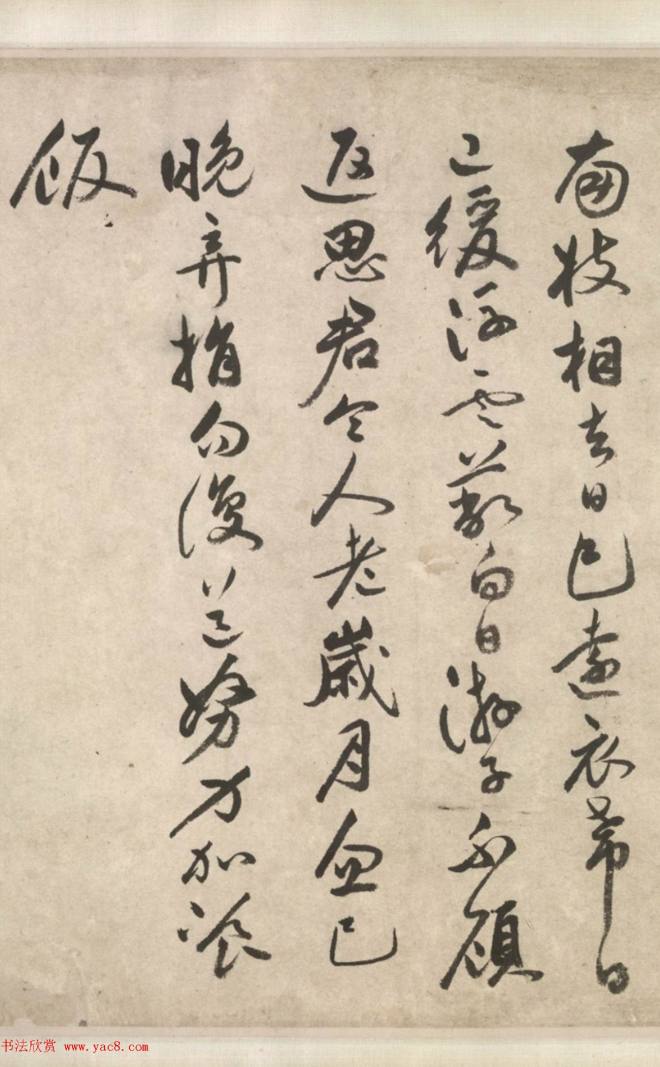 南枝相去日已遠衣帶日
已緩浮雲蔽白日游子不顧
返思君令人老歲月忽已
晚弃捐勿復道努力加飡
飯
书法欣赏 www.yac8.com